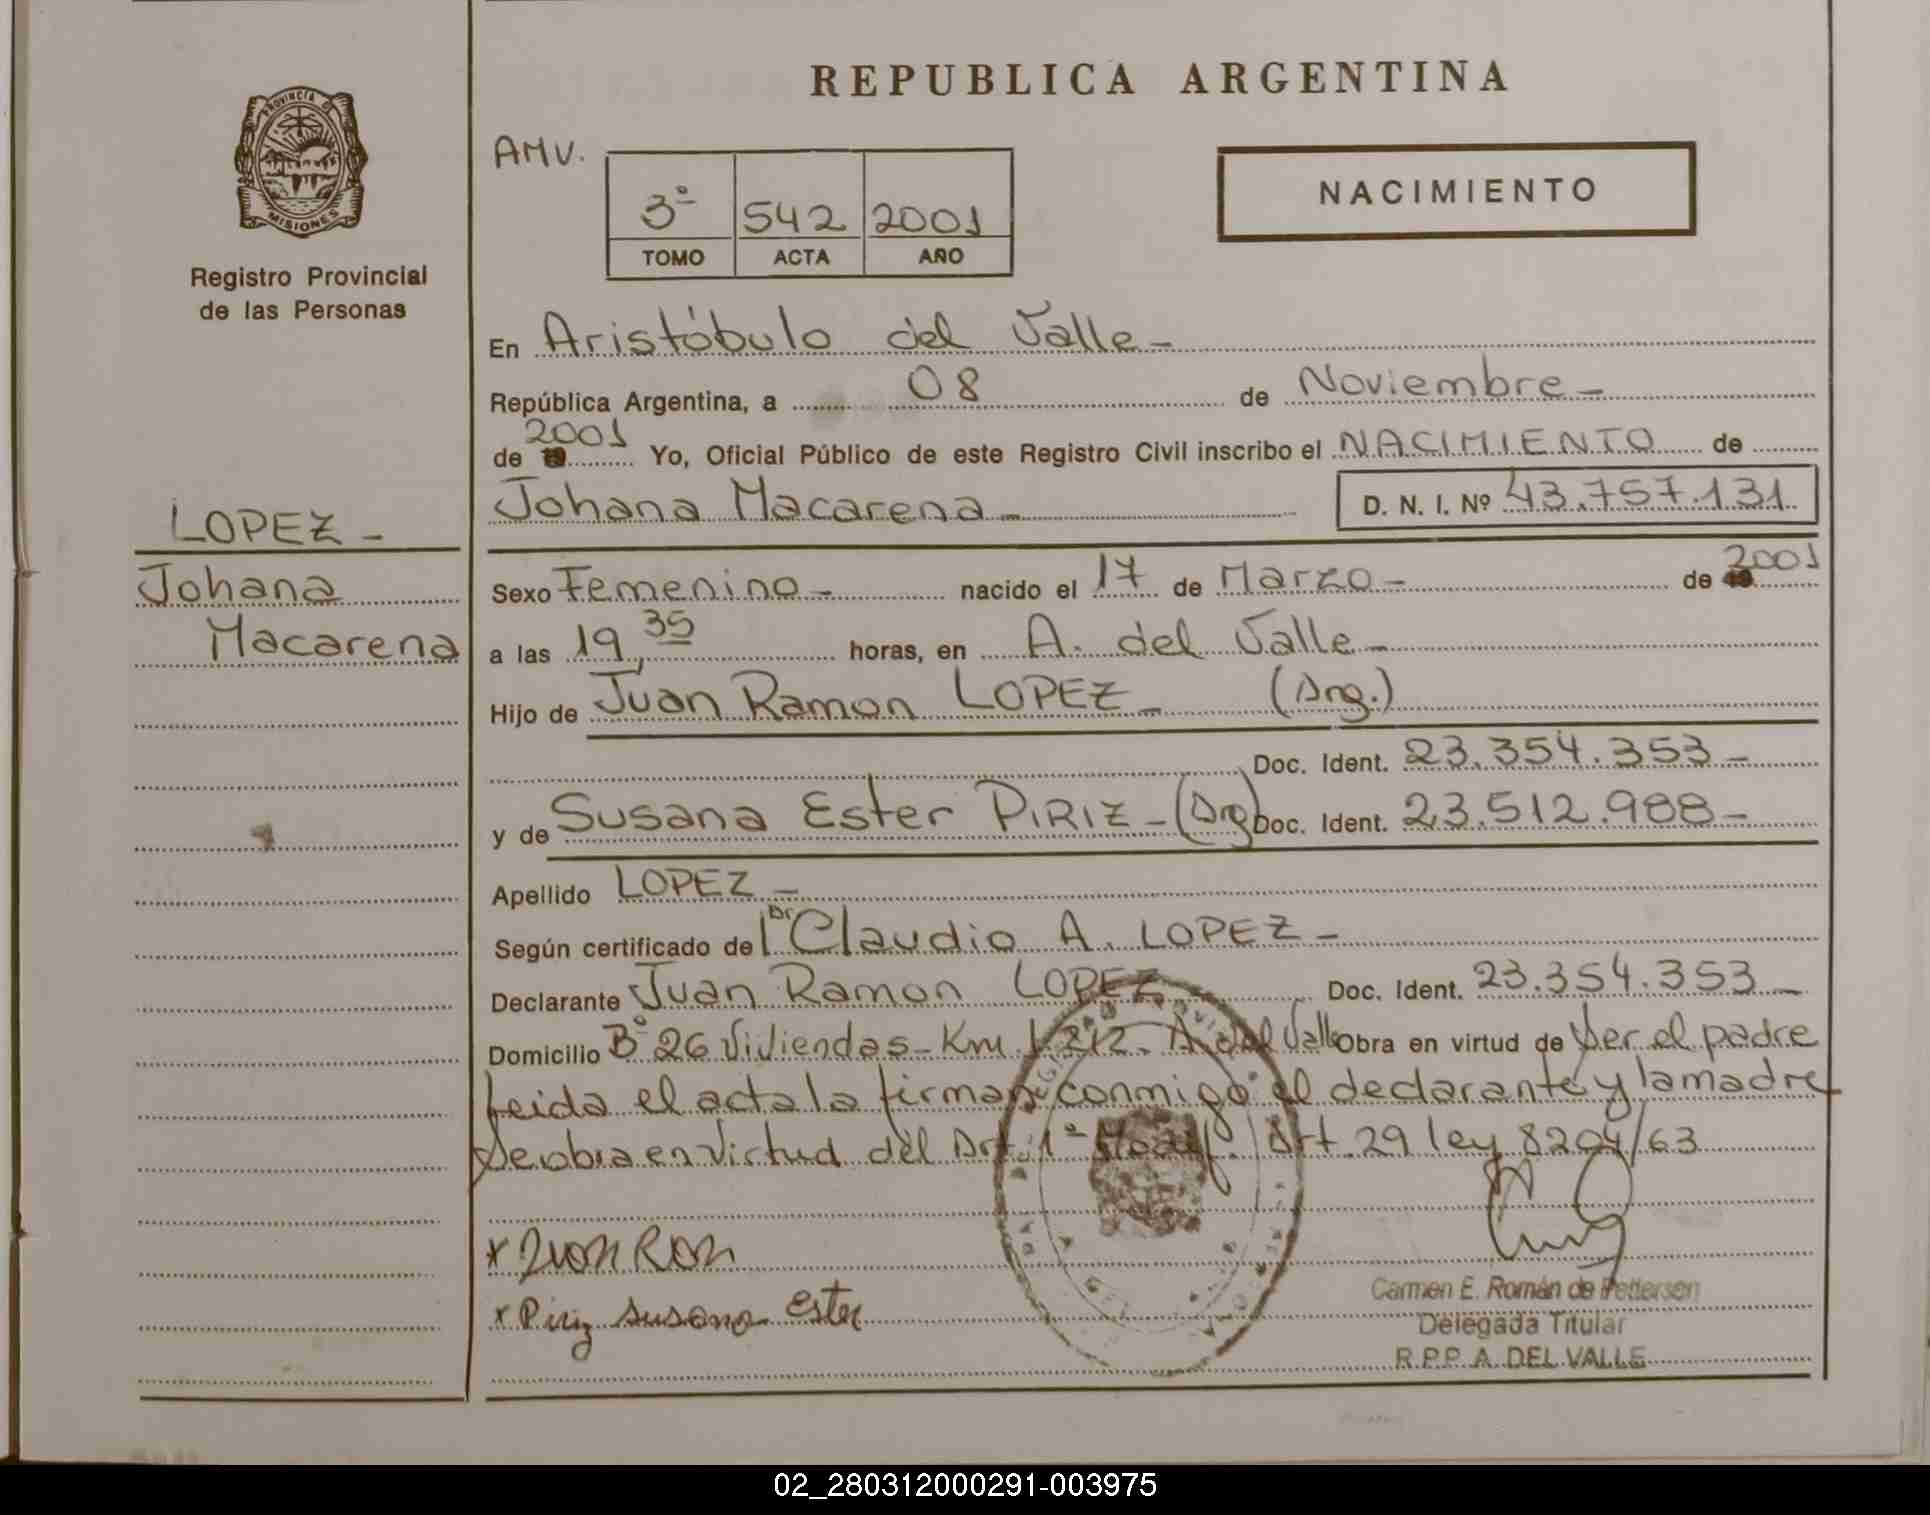 REPUBLICA ARGENTINA
PROVINCIA DE
MISIONES
Registro Provincial
de las Personas
AMV.
3º 542 2001
TOMO ACTA AÑO
NACIMIENTO
En Aristóbulo del Valle-
República Argentina, a 08 de Noviembre-
de 2001 Yo, Oficial Público de este Registro Civil inscribo el NACIMIENTO de
Johana Macarena- D. N. I. Nº 43.757.131
LOPEZ-
Johana
Macarena
Sexo Femenino- nacido el 17 de Marzo- de 2001
a las 19,35 horas, en A. del Valle-
Hijo de Juan Ramon LOPEZ- (Arg.)
Doc. Ident. 23.354.353-
y de Susana Ester PIRIZ-(Arg) Doc. Ident. 23.512.988-
Apellido LOPEZ-
Según certificado del Dr Claudio A. LOPEZ-
Declarante Juan Ramon LOPEZ Doc. Ident. 23.354.353-
Domicilio Bº 26 Viviendas-Km 1.212- A. del Valle Obra en virtud de Ser el padre
Leida el acta la firman conmigo el declarante y la madre
Se obra en virtud del Art. 1º Modif. Art. 29 ley 8204/63
x Juan Ron
x Piriz Susana Ester
Carmen E. Román de Pettersen
Delegada Titular
R.P.P. A. DEL VALLE
02_280312000291-003975